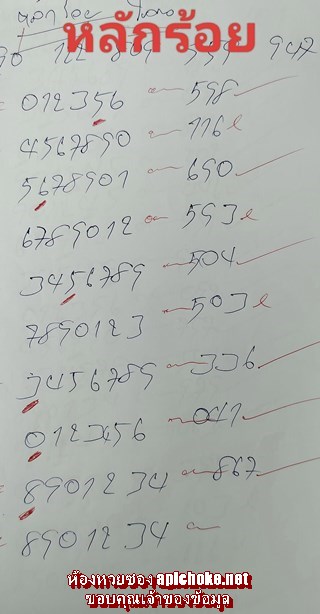 หลักร้อย
012356 598
4567890 116
5678901 690
6789012 593
3456789 504
7890123 503
3456789 336
0123456 041
8901234 867
8901234
ห้องหวยซอง apichoke.net
ขอบคุณเจ้าของข้อมูล